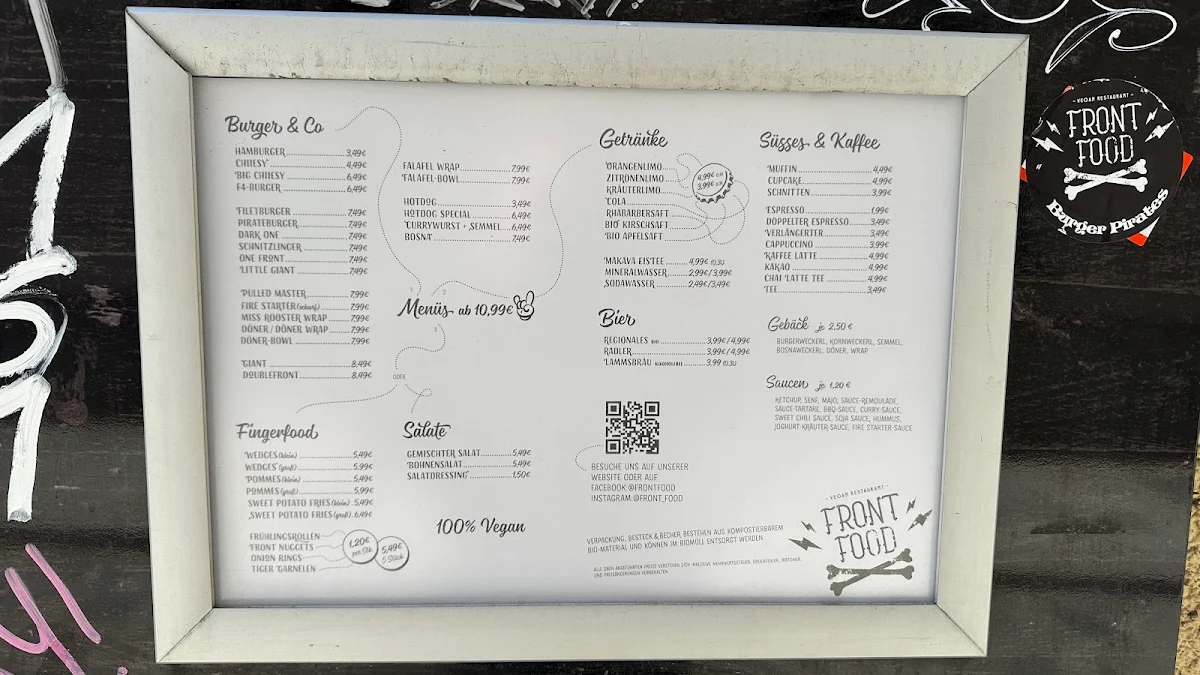 Burger & Co
HAMBURGER 3,49€
CHIIESY 4,49€
BIG CHIIESY 6,49€
F4-BURGER 6,49€
FILETBURGER 7,49€
PIRATEBURGER 7,49€
DARK ONE 7,49€
SCHNITZLINGER 7,49€
ONE FRONT 7,49€
LITTLE GIANT 7,49€
PULLED MASTER 7,99€
FIRE STARTER (scharf) 7,99€
MISS ROOSTER WRAP 7,99€
DÖNER / DÖNER WRAP 7,99€
DÖNER-BOWL 7,99€
GIANT 8,49€
DOUBLEFRONT 8,49€
FALAFEL WRAP 7,99€
FALAFEL-BOWL 7,99€
HOTDOG 3,49€
HOTDOG SPECIAL 6,49€
CURRYWURST + SEMMEL 6,49€
BOSNA 7,49€
Menüs ab 10,99€
ODER
Fingerfood
WEDGES (klein) 5,49€
WEDGES (groß) 5,99€
POMMES (klein) 5,49€
POMMES (groß) 5,99€
SWEET POTATO FRIES (klein) 5,49€
SWEET POTATO FRIES (groß) 6,49€
FRÜHLINGSROLLEN
FRONT NUGGETS
ONION RINGS
TIGER GARNELEN
1,20€
per Stk.
5,49€
5 Stück
Salate
GEMISCHTER SALAT 5,49€
BOHNENSALAT 5,49€
SALATDRESSING 1,50€
100% Vegan
Getränke
ORANGENLIMO
ZITRONENLIMO
KRÄUTERLIMO
COLA
RHABARBERSAFT
BIO KIRSCHSAFT
BIO APFELSAFT
4,99€
3,99€
MAKAVA EISTEE 4,99€ (0,3l)
MINERALWASSER 2,99€/3,99€
SODAWASSER 2,49€/3,49€
Bier
REGIONALES BIO 3,99€/4,99€
RADLER 3,99€/4,99€
LAMMSBRÄU ALKOHOLFREI 3,99 (0,3l)
BESUCHE UNS AUF UNSERER
WEBSITE ODER AUF
FACEBOOK @FRONTFOOD
INSTAGRAM @FRONT_FOOD
Süsses & Kaffee
MUFFIN 4,49€
CUPCAKE 4,99€
SCHNITTEN 3,99€
ESPRESSO 1,99€
DOPPELTER ESPRESSO 3,49€
VERLÄNGERTER 3,49€
CAPPUCCINO 3,99€
KAFFEE LATTE 4,99€
KAKAO 4,99€
CHAI LATTE TEE 4,99€
TEE 3,49€
Gebäck je 2,50 €
BURGERWECKERL, KORNWECKERL, SEMMEL,
BOSNAWECKERL, DÖNER, WRAP
Saucen je 1,20 €
KETCHUP, SENF, MAJO, SAUCE-REMOULADE,
SAUCE-TARTARE, BBQ-SAUCE, CURRY-SAUCE,
SWEET CHILI SAUCE, SOJA SAUCE, HUMMUS,
JOGHURT-KRÄUTER-SAUCE, FIRE STARTER-SAUCE
VERPACKUNG, BESTECK & BECHER BESTEHEN AUS KOMPOSTIERBAREM
BIO-MATERIAL UND KÖNNEN IM BIOMÜLL ENTSORGT WERDEN.
ALLE OBEN ANGEFÜHRTEN PREISE VERSTEHEN SICH INKLUSIVE MEHRWERTSTEUER, DRUCKFEHLER, IRRTÜMER,
UND PREISÄNDERUNGEN VORBEHALTEN.
- VEGAN RESTAURANT -
FRONT
FOOD
- VEGAN RESTAURANT -
FRONT
FOOD
Burger Pirates